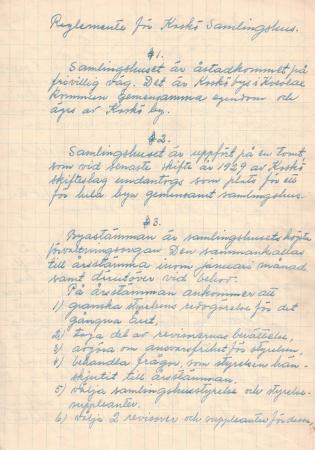 Reglemente för Koskö Samlingshus.
§1.
Samlingshuset är åstadkommet på
frivillig väg. Det är Koskö bys i Kvevlax
kommun gemensamma egendom och
äges av Koskö by.
§2.
Samlingshuset är uppfört på en tomt
som vid senaste skifte år 1929 av Koskö
skifteslag undantogs som plats för ett
för hela byn gemensamt samlingshus.
§3.
Byastämman är samlingshusets högsta
förvaltningsorgan. Den sammankallas
till årsstämma inom januari månad
samt därutöver vid behov.
På årsstämman ankommer att
1) granska styrelsens redogörelse för det
gångna året,
2) taga del av revisorernas berättelse,
3) avgöra om ansvarsfrihet för styrelsen,
4) behandla frågor, som styrelsen hän-
skjutit till årsstämman.
5) välja samlingshusstyrelse och styrelse-
suppleanter.
6) välja 2 revisorer och suppleanter för dessa,